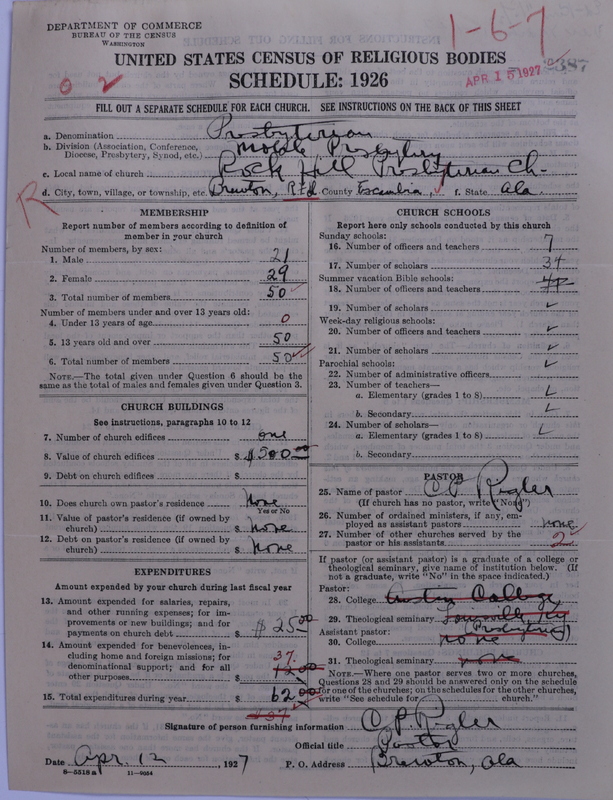 DEPARTMENT OF COMMERCE
BUREAU OF THE CENSUS
WASHINGTON
1-6-7
UNITED STATES CENSUS OF RELIGIOUS BODIES
SCHEDULE: 1926
APR 15 1927
387
0 2
FILL OUT A SEPARATE SCHEDULE FOR EACH CHURCH. SEE INSTRUCTIONS ON THE BACK OF THIS SHEET
a. Denomination Presbyterian
b. Division (Association, Conference, Diocese, Presbytery, Synod, etc.) Mobile Presbytery
c. Local name of church Rock Hill Presbyterian Ch.
d. City, town, village, or township, etc. Brewton, Rfd County Escambia, f. State Ala.
R
MEMBERSHIP
Report number of members according to definition of
member in your church
Number of members, by sex:
1. Male 21
2. Female 29
3. Total number of members 50
Number of members under and over 13 years old:
4. Under 13 years of age 0
5. 13 years old and over 50
6. Total number of members 50
NOTE.—The total given under Question 6 should be the
same as the total of males and females given under Question 3.
CHURCH BUILDINGS
See instructions, paragraphs 10 to 12
7. Number of church edifices one
8. Value of church edifices $ $500.00
9. Debt on church edifices $
10. Does church own pastor's residence None
Yes or No
11. Value of pastor's residence (if owned by
church) $ None
12. Debt on pastor's residence (if owned by
church) $ None
EXPENDITURES
Amount expended by your church during last fiscal year
13. Amount expended for salaries, repairs,
and other running expenses; for im-
provements or new buildings; and for
payments on church debt $ $25.00
14. Amount expended for benevolences, in-
cluding home and foreign missions; for
denominational support; and for all
other purposes $ 37. 12.00
15. Total expenditures during year $ 62.00
$37
CHURCH SCHOOLS
Report here only schools conducted by this church
Sunday schools:
16. Number of officers and teachers 7
17. Number of scholars 34
Summer vacation Bible schools:
18. Number of officers and teachers
19. Number of scholars ✓
Week-day religious schools:
20. Number of officers and teachers ✓
21. Number of scholars ✓
Parochial schools:
22. Number of administrative officers ✓
23. Number of teachers—
a. Elementary (grades 1 to 8) ✓
b. Secondary ✓
24. Number of scholars—
a. Elementary (grades 1 to 8) ✓
b. Secondary
PASTOR
25. Name of pastor C. P. Rigler
(If church has no pastor, write "None")
26. Number of ordained ministers, if any, em-
ployed as assistant pastors none
27. Number of other churches served by the
pastor or his assistants 2
If pastor (or assistant pastor) is a graduate of a college or
theological seminary, give name of institution below. (If
not a graduate, write "No" in the space indicated.)
Pastor:
28. College Austin College
29. Theological seminary Louisville, Ky
(Presbyterian)
Assistant pastor:
30. College none
31. Theological seminary none
NOTE.—Where one pastor serves two or more churches,
Questions 28 and 29 should be answered only on the schedule
for one of the churches; on the schedules for the other churches,
write "See schedule for church."
Signature of person furnishing information C. P. Rigler
Official title Pastor
Date Apr. 12, 1927 P. O. Address Brewton, Ala
8-5518 a 11-9064